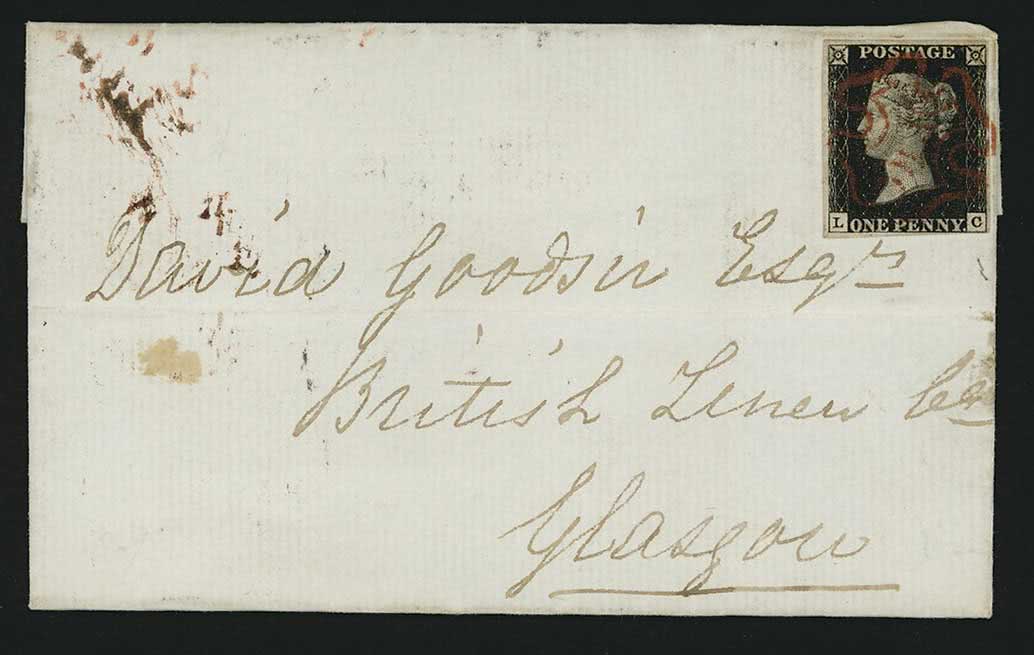 POSTAGE
L ONE PENNY C
David Goodsir Esqr
British Linen Co
Glasgow